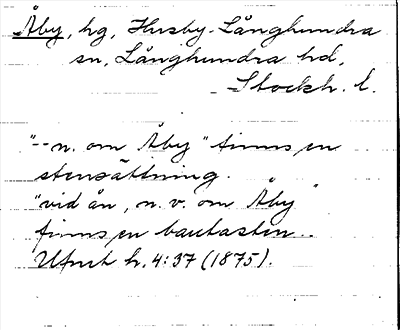 Åby, hg, Husby-Långhundra
sn, Långhundra hd,
Stockh. l.
"-- n. om Åby" finns en
stensättning.
"vid ån, n. v. om Åby"
finns en bautasten..
Upnt h. 4:37 (1875).